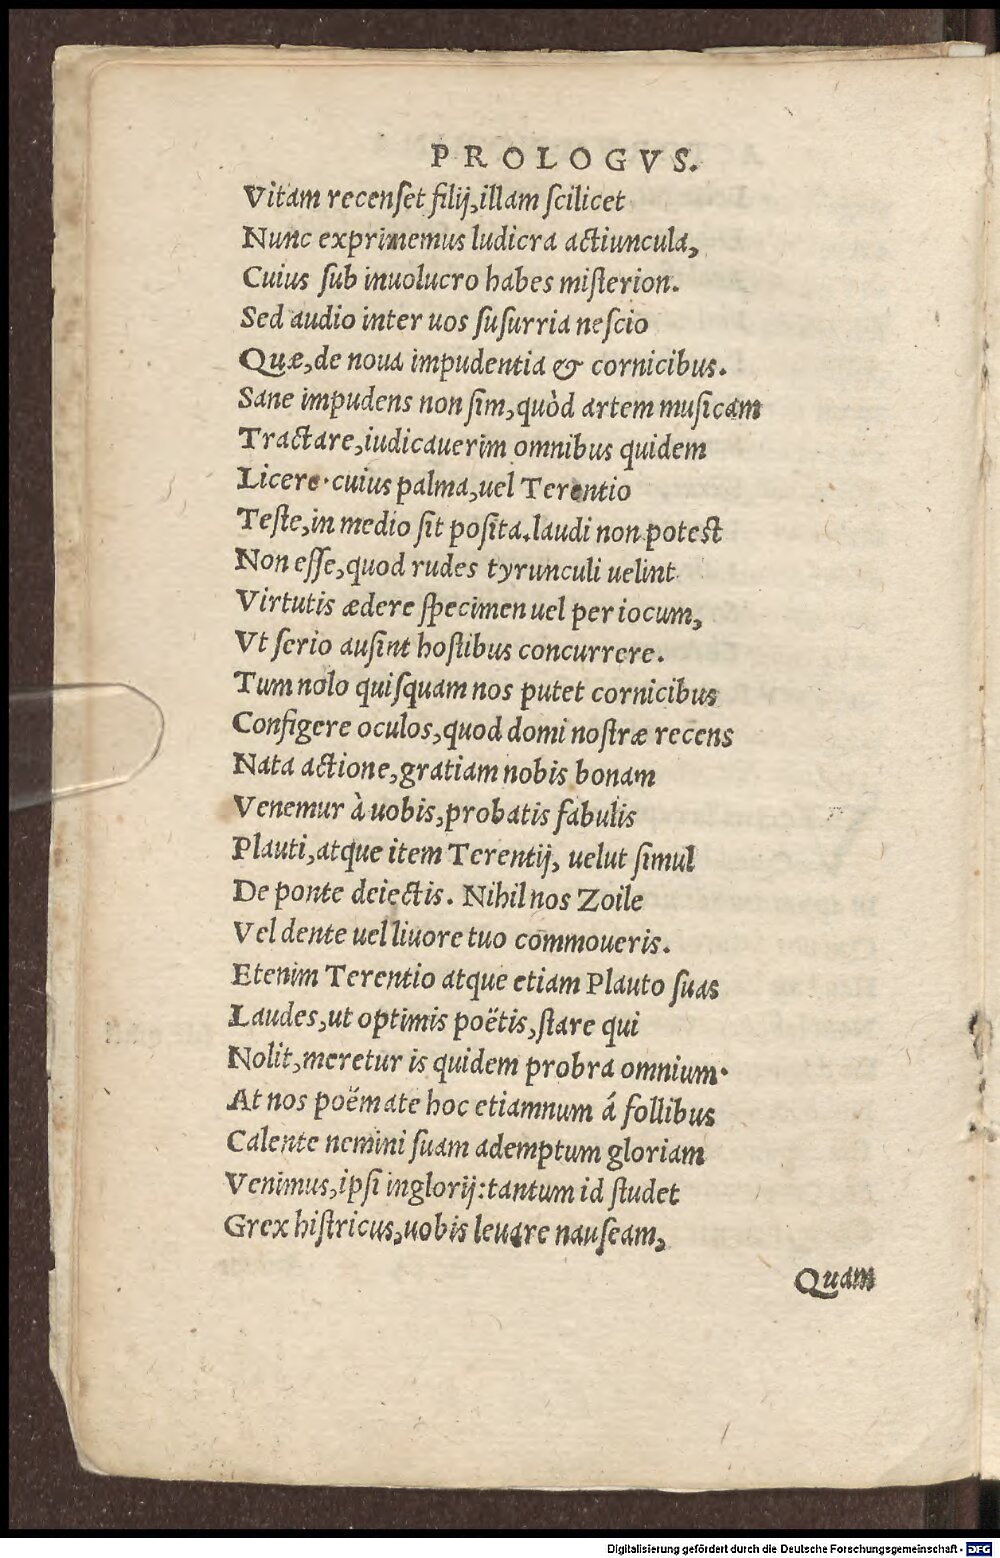 PROLOGVS.
Vitam recenſet filij, illam ſcilicet
Nunc exprimemus ludicra actiuncula,
Cuius ſub inuolucro habes miſterion.
Sed audio inter uos ſuſurria neſcio
Quæ, de noua impudentia & cornicibus.
Sane impudens non ſim, quòd artem muſicam
Tractare, iudicauerim omnibus quidem
Licere. cuius palma, uel Terentio
Teſte, in medio ſit poſita. laudi non poteſt
Non eſſe, quod rudes tyrunculi uelint
Virtutis ædere ſpecimen uel per iocum,
Vt ſerio auſint hoſtibus concurrere.
Tum nolo quiſquam nos putet cornicibus
Configere oculos, quod domi noſtræ recens
Nata actione, gratiam nobis bonam
Venemur à uobis, probatis fabulis
Plauti, atque item Terentij, uelut ſimul
De ponte deiectis. Nihil nos Zoile
Vel dente uel liuore tuo commoueris.
Etenim Terentio atque etiam Plauto ſuas
Laudes, ut optimis poëtis, ſtare qui
Nolit, meretur is quidem probra omnium.
At nos poëmate hoc etiamnum á follibus
Calente nemini ſuam ademptum gloriam
Venimus, ipſi inglorij: tantum id ſtudet
Grex hiſtricus, uobis leuare nauſeam,
Quam
Digitalisierung gefördert durch die Deutsche Forschungsgemeinschaft - DFG